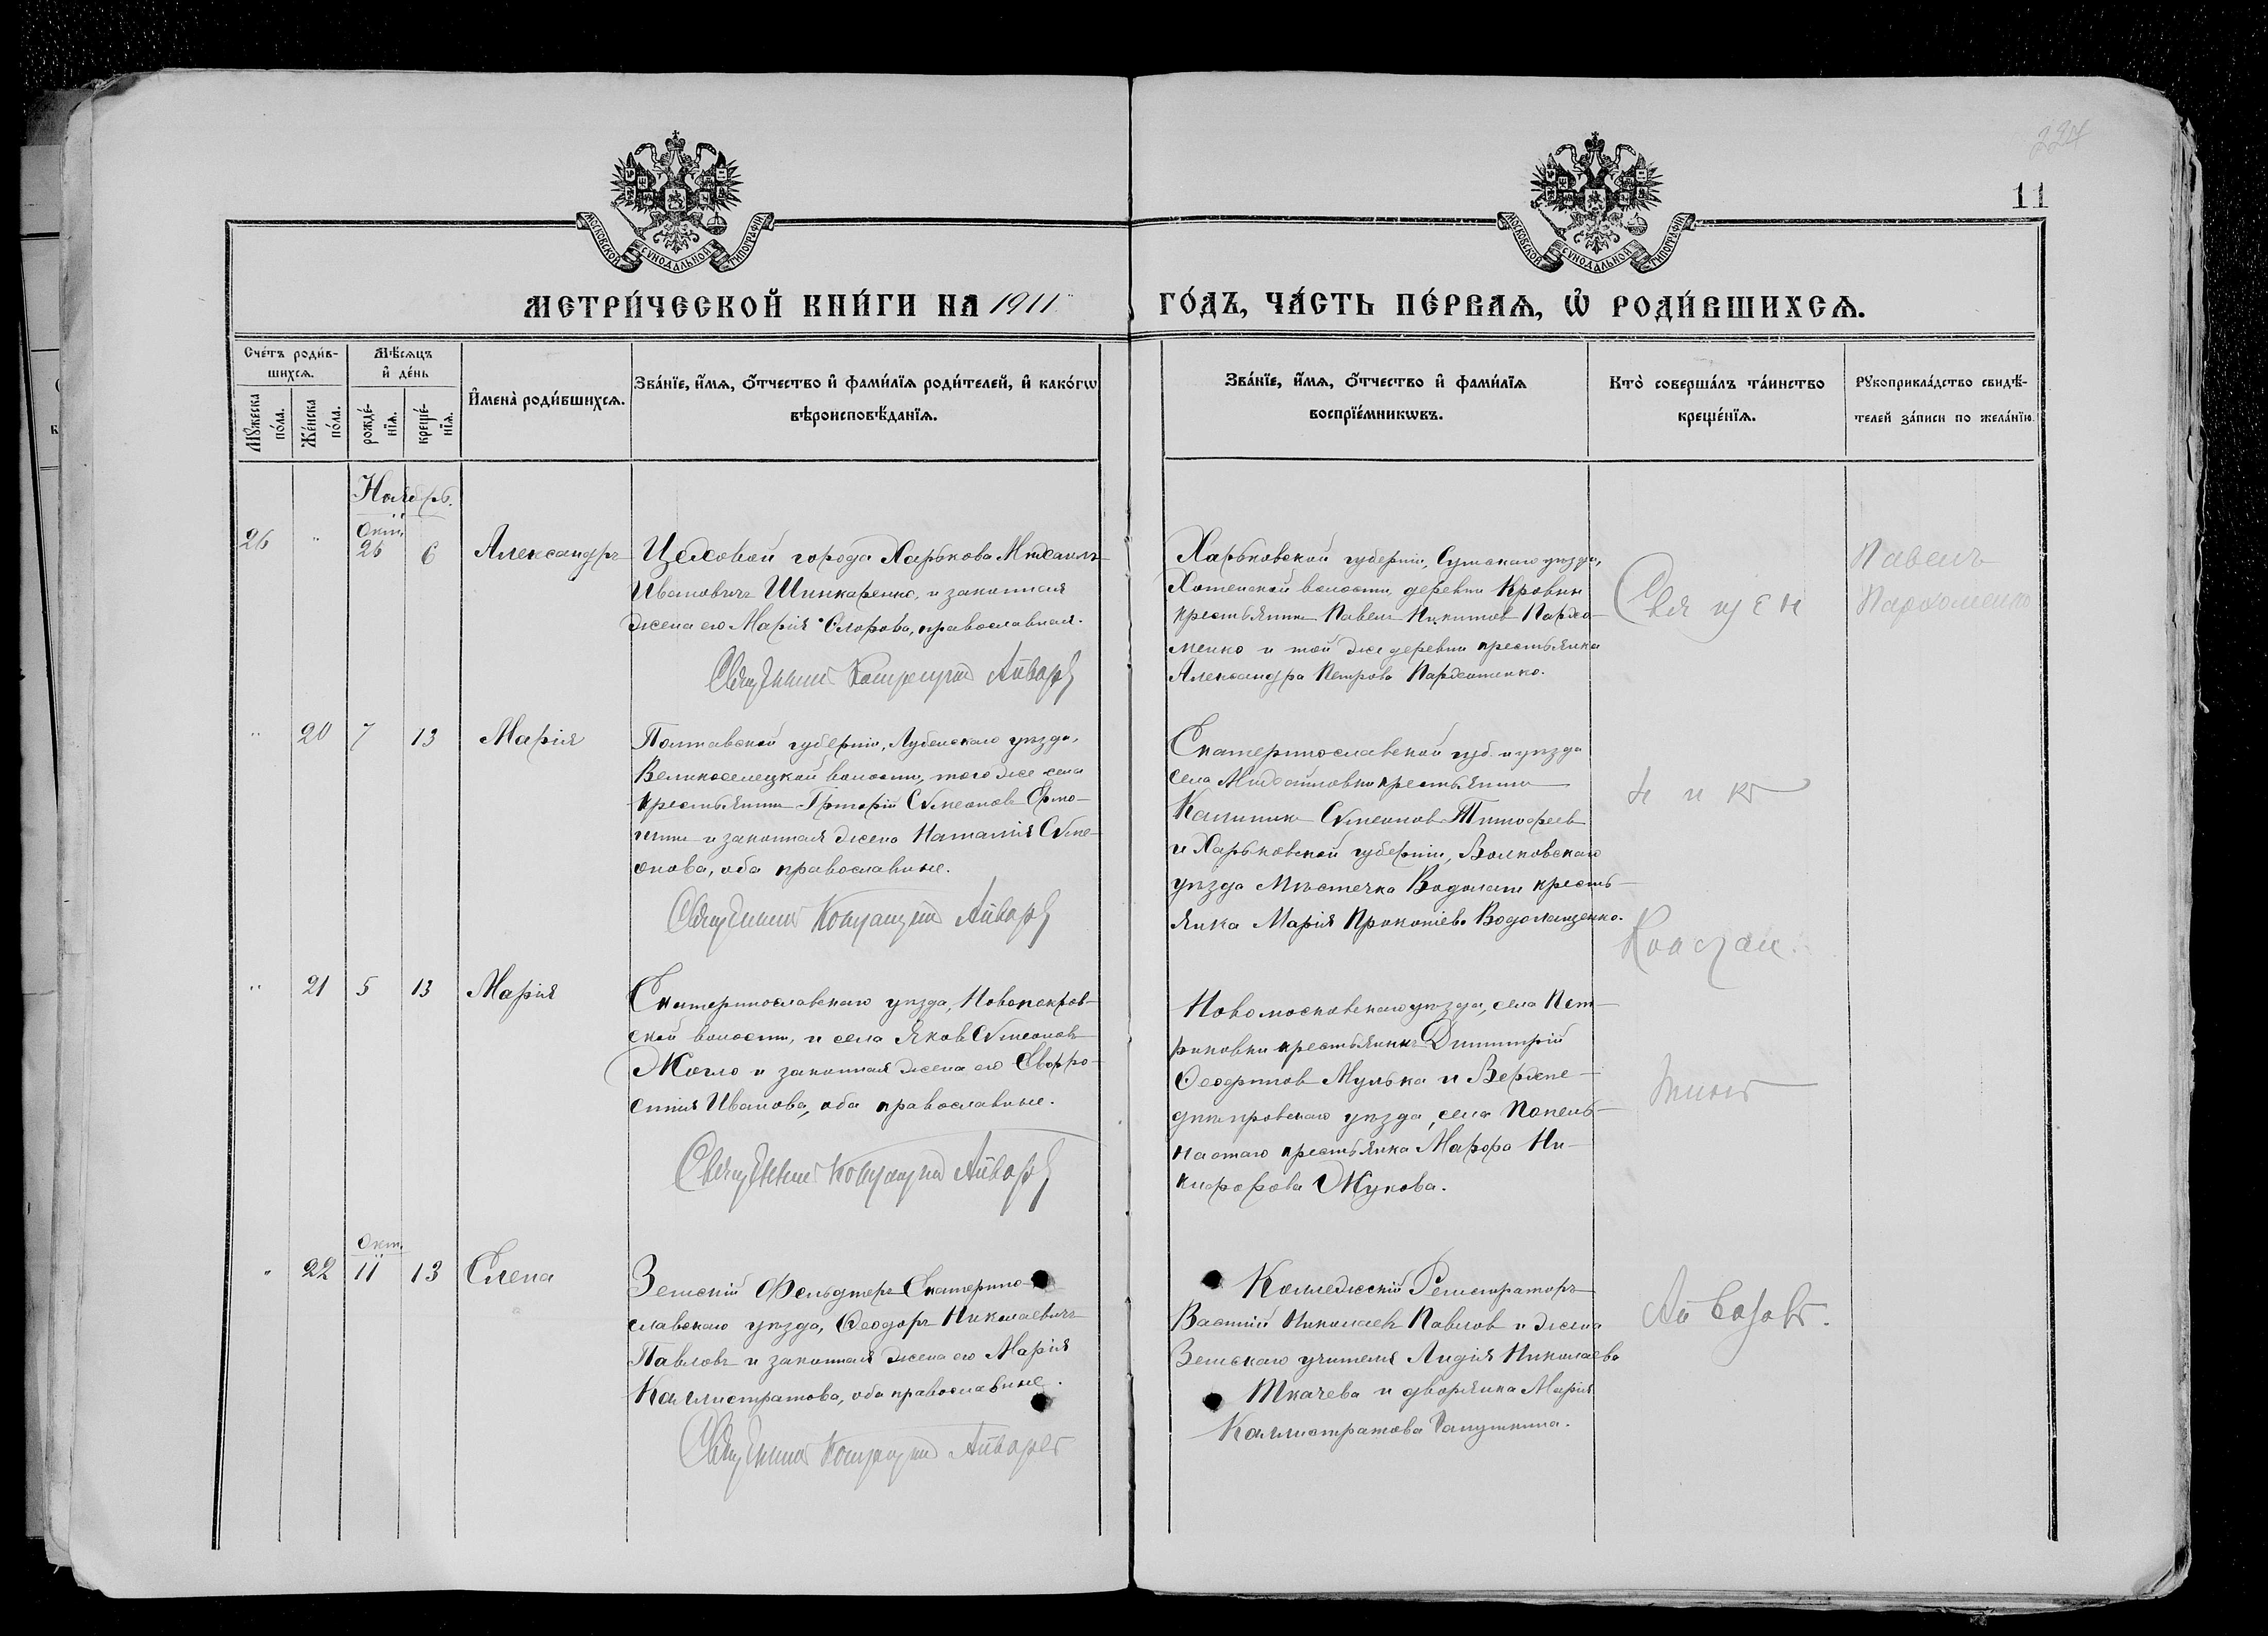 224
11
МОСКОВСКОЙ СѴНОДАЛЬНОЙ ТИПОГРАФІИ
МОСКОВСКОЙ СѴНОДАЛЬНОЙ ТИПОГРАФІИ
МЕТРИ́ЧЕСКОЙ КНИ́ГИ НА 1911
ГО́ДЪ, ЧА́СТЬ ПЕ́РВАѦ, Ѡ҆ РОДИ́ВШИХСѦ.
Сче́тъ роди́в-
шихсѧ.
Мꙋ́жеска
по́ла.
Же́нска
по́ла.
Мѣ́сѧцъ
и҆ де́нь
рожде́-
нїѧ.
креще́-
нїѧ.
И҆мена̀ роди́вшихсѧ.
Зва́нїе, и҆́мѧ, ѻ҆́тчество и҆ фами́лїѧ роди́телей, и҆ како́гѡ
вѣроисповѣ́данїѧ.
Зва́нїе, и҆́мѧ, ѻ҆́тчество и҆ фами́лїѧ
воспрїе́мникѡвъ.
Кто̀ соверша́лъ та́инство
креще́нїѧ.
Рꙋкоприкла́дство свидѣ́-
телей за́писи по жела́нїю.
Ноябрь.
26 " Окт. 26 6 Александръ
Цеховой города Харькова Михаилъ
Ивановичъ Шинкаренко, и законная
жена его Марія Ѳеодорова, православная.
Священникъ Айваровъ
Харьковской губерніи, Сумскаго уѣзда,
Хотенской волости, деревни Кровны
крестьянинъ Павелъ Никитовъ Пархо-
менко и той же деревни крестьянка
Александра Петрова Пархоменко.
Священ
Павелъ
Пархоменко
" 20 7 13 Марія
Полтавской губерніи, Лубенскаго уѣзда,
Великоселецкой волости, того же села
крестьянинъ Григорій Сѵмеоновъ
и законная жена Наталія Сѵме-
онова, оба православные.
Священникъ Айваровъ
Екатеринославской губ. и уѣзда
села Михайловки крестьянинъ
Калиникъ Сѵмеоновъ Тимофеевъ
и Харьковской губерніи, Волковскаго
уѣзда мѣстечка Водолаги кресть-
янка Марія Прокопіева Водолащенко.
никъ
" 21 5 13 Марія
Екатеринославскаго уѣзда, Новопокров-
ской волости, и села Яковъ Сѵмеоновъ
и законная жена его Евфро-
синія Иванова, оба православные.
Священникъ Айваровъ
Новомосковскаго уѣзда, села Пет-
риковки крестьянинъ Димитрій
Мулька и Верхне-
днѣпровскаго уѣзда, села Попель-
настаго крестьянка Марфа Ни-
кифорова Жукова.
" 22 Окт. 11 13 Елена
Земскій Фельдшеръ Екатерино-
славскаго уѣзда, Ѳеодоръ Николаевичъ
Павловъ и законная жена его Марія
Каллистратова, оба православные.
Священникъ Айваровъ
Коллежскій Регистраторъ
Василій Николаевъ Павловъ и жена
Земскаго учителя Лидія Николаева
Ткачева и дворянка Марія
Каллистратова
Айваровъ.